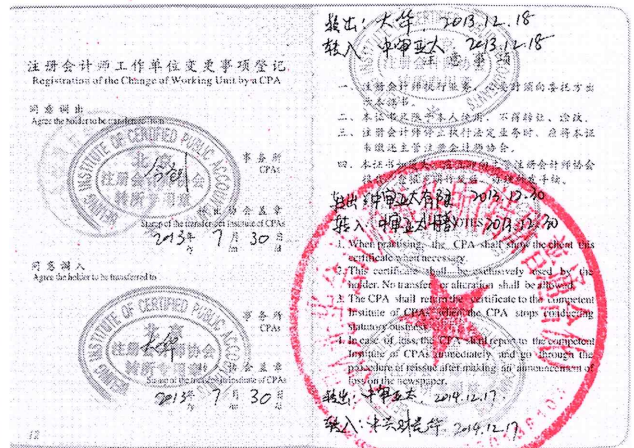 注册会计师工作单位变更事项登记
Registration of the Change of Working Unit by a CPA
同意调出
Agree the holder to be transferred from
事务所
CPAs
BEIJING INSTITUTE OF CERTIFIED PUBLIC ACCOUNTANTS
北京
注册会计师协会
转所专用章
转出协会盖章
Stamp of the transfer-out Institute of CPAs
2013年 7月 30日
同意调入
Agree the holder to be transferred to
事务所
CPAs
BEIJING INSTITUTE OF CERTIFIED PUBLIC ACCOUNTANTS
北京
大华
注册会计师协会
转所专用章
转入协会盖章
Stamp of the transfer-in Institute of CPAs
2013年 7月 30日
12
转出: 大华 2013.12.18
转入 中审亚太 2013.12.18
注意事项
一、注册会计师执行业务,必要时须向委托方出
示本证书。
二、本证书只限于本人使用,不得转让、涂改。
三、注册会计师停止执行法定业务时,应将本证
书缴还主管注册会计师协会。
四、本证书如遗失,应立即向主管注册会计师协会
转出:中审亚太 2013.12.30
转入: 中审亚太 2013.12.30
1. When practising, the CPA shall show the client this
certificate when necessary.
2. This certificate shall be exclusively used by the
holder. No transfer or alteration shall be allowed.
3. The CPA shall return the certificate to the competent
Institute of CPAs when the CPA stops conducting
statutory business.
4. In case of loss, the CPA shall report to the competent
Institute of CPAs immediately and go through the
procedure of reissue after making an announcement of
loss on the newspaper.
转出: 中审亚太 2014.12.17
转入: 2014.12.17